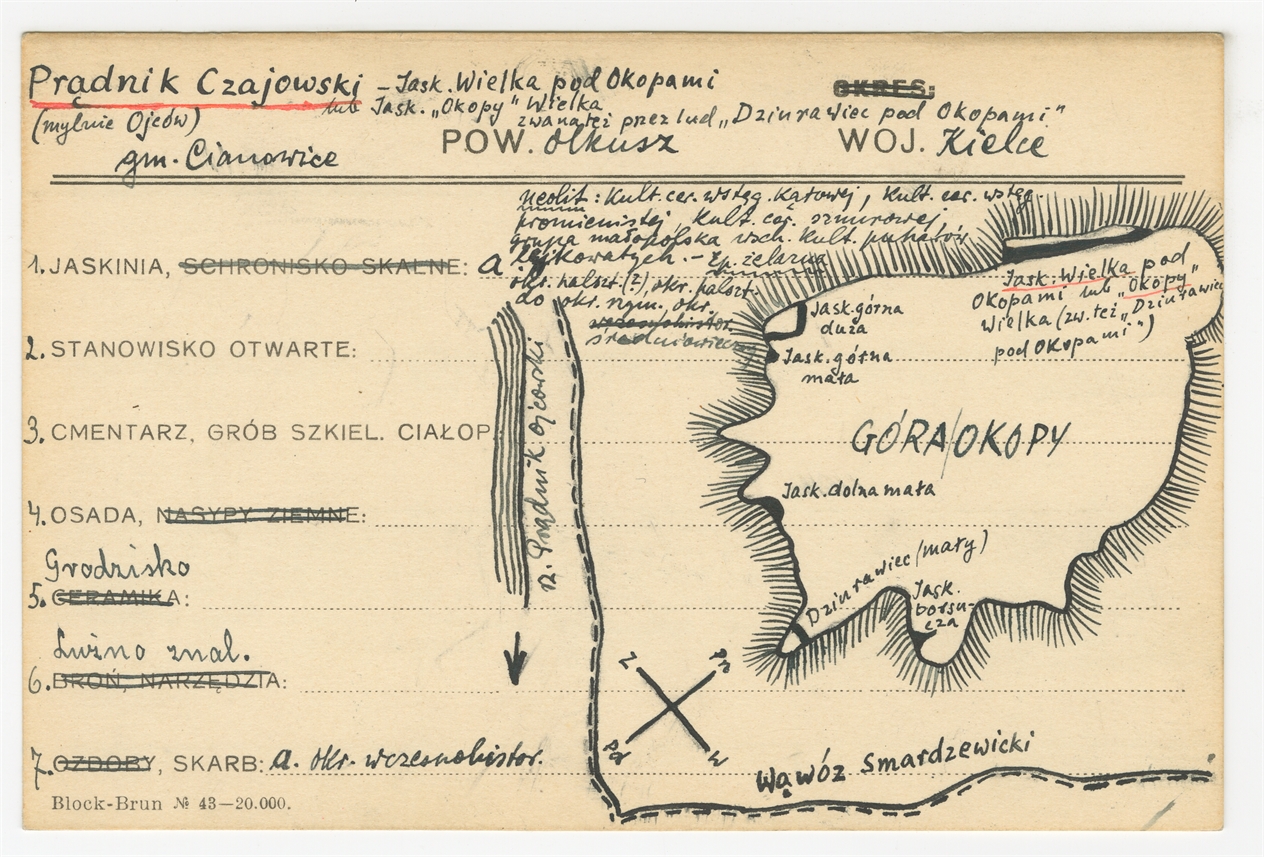 Prądnik Czajowski – Jask. Wielka pod Okopami
lub Jask. „Okopy" Wielka
(mylnie Ojców) zwana też przez lud „Dziurawiec pod Okopami"
OKRES:
gm. Cianowice POW. Olkusz WOJ. Kielce
neolit: Kult. cer. wstęg. Kątowej, Kult. cer. wstęg.
promienistej, Kult. cer. sznurowej,
grupa małopolska wsch. Kult. puharów
lejkowatych. – Ep. żelazna
okr. halszt. (?), okr. halszt.
do okr. rzym. okr.
wczesnohistor.
średniowieczny
1. JASKINIA, SCHRONISKO SKALNE: a.
2. STANOWISKO OTWARTE:
3. CMENTARZ, GRÓB SZKIEL. CIAŁOP.
4. OSADA, NASYPY ZIEMNE:
Grodzisko
5. CERAMIKA:
Luźno znal.
6. BROŃ, NARZĘDZIA:
7. OZDOBY, SKARB: a. okr. wczesnohistor.
Block-Brun № 43—20.000.
rz. Prądnik ojcowski
Jask. Wielka pod
Okopami lub „Okopy"
Wielka (zw. też „Dziurawiec
pod Okopami")
Jask. górna
duża
Jask. górna
mała
GÓRA OKOPY
Jask. dolna mała
Dziurawiec (mały)
Jask.
borsu-
cza
Z
Pn
Pd
W
Wąwóz Smardzewicki